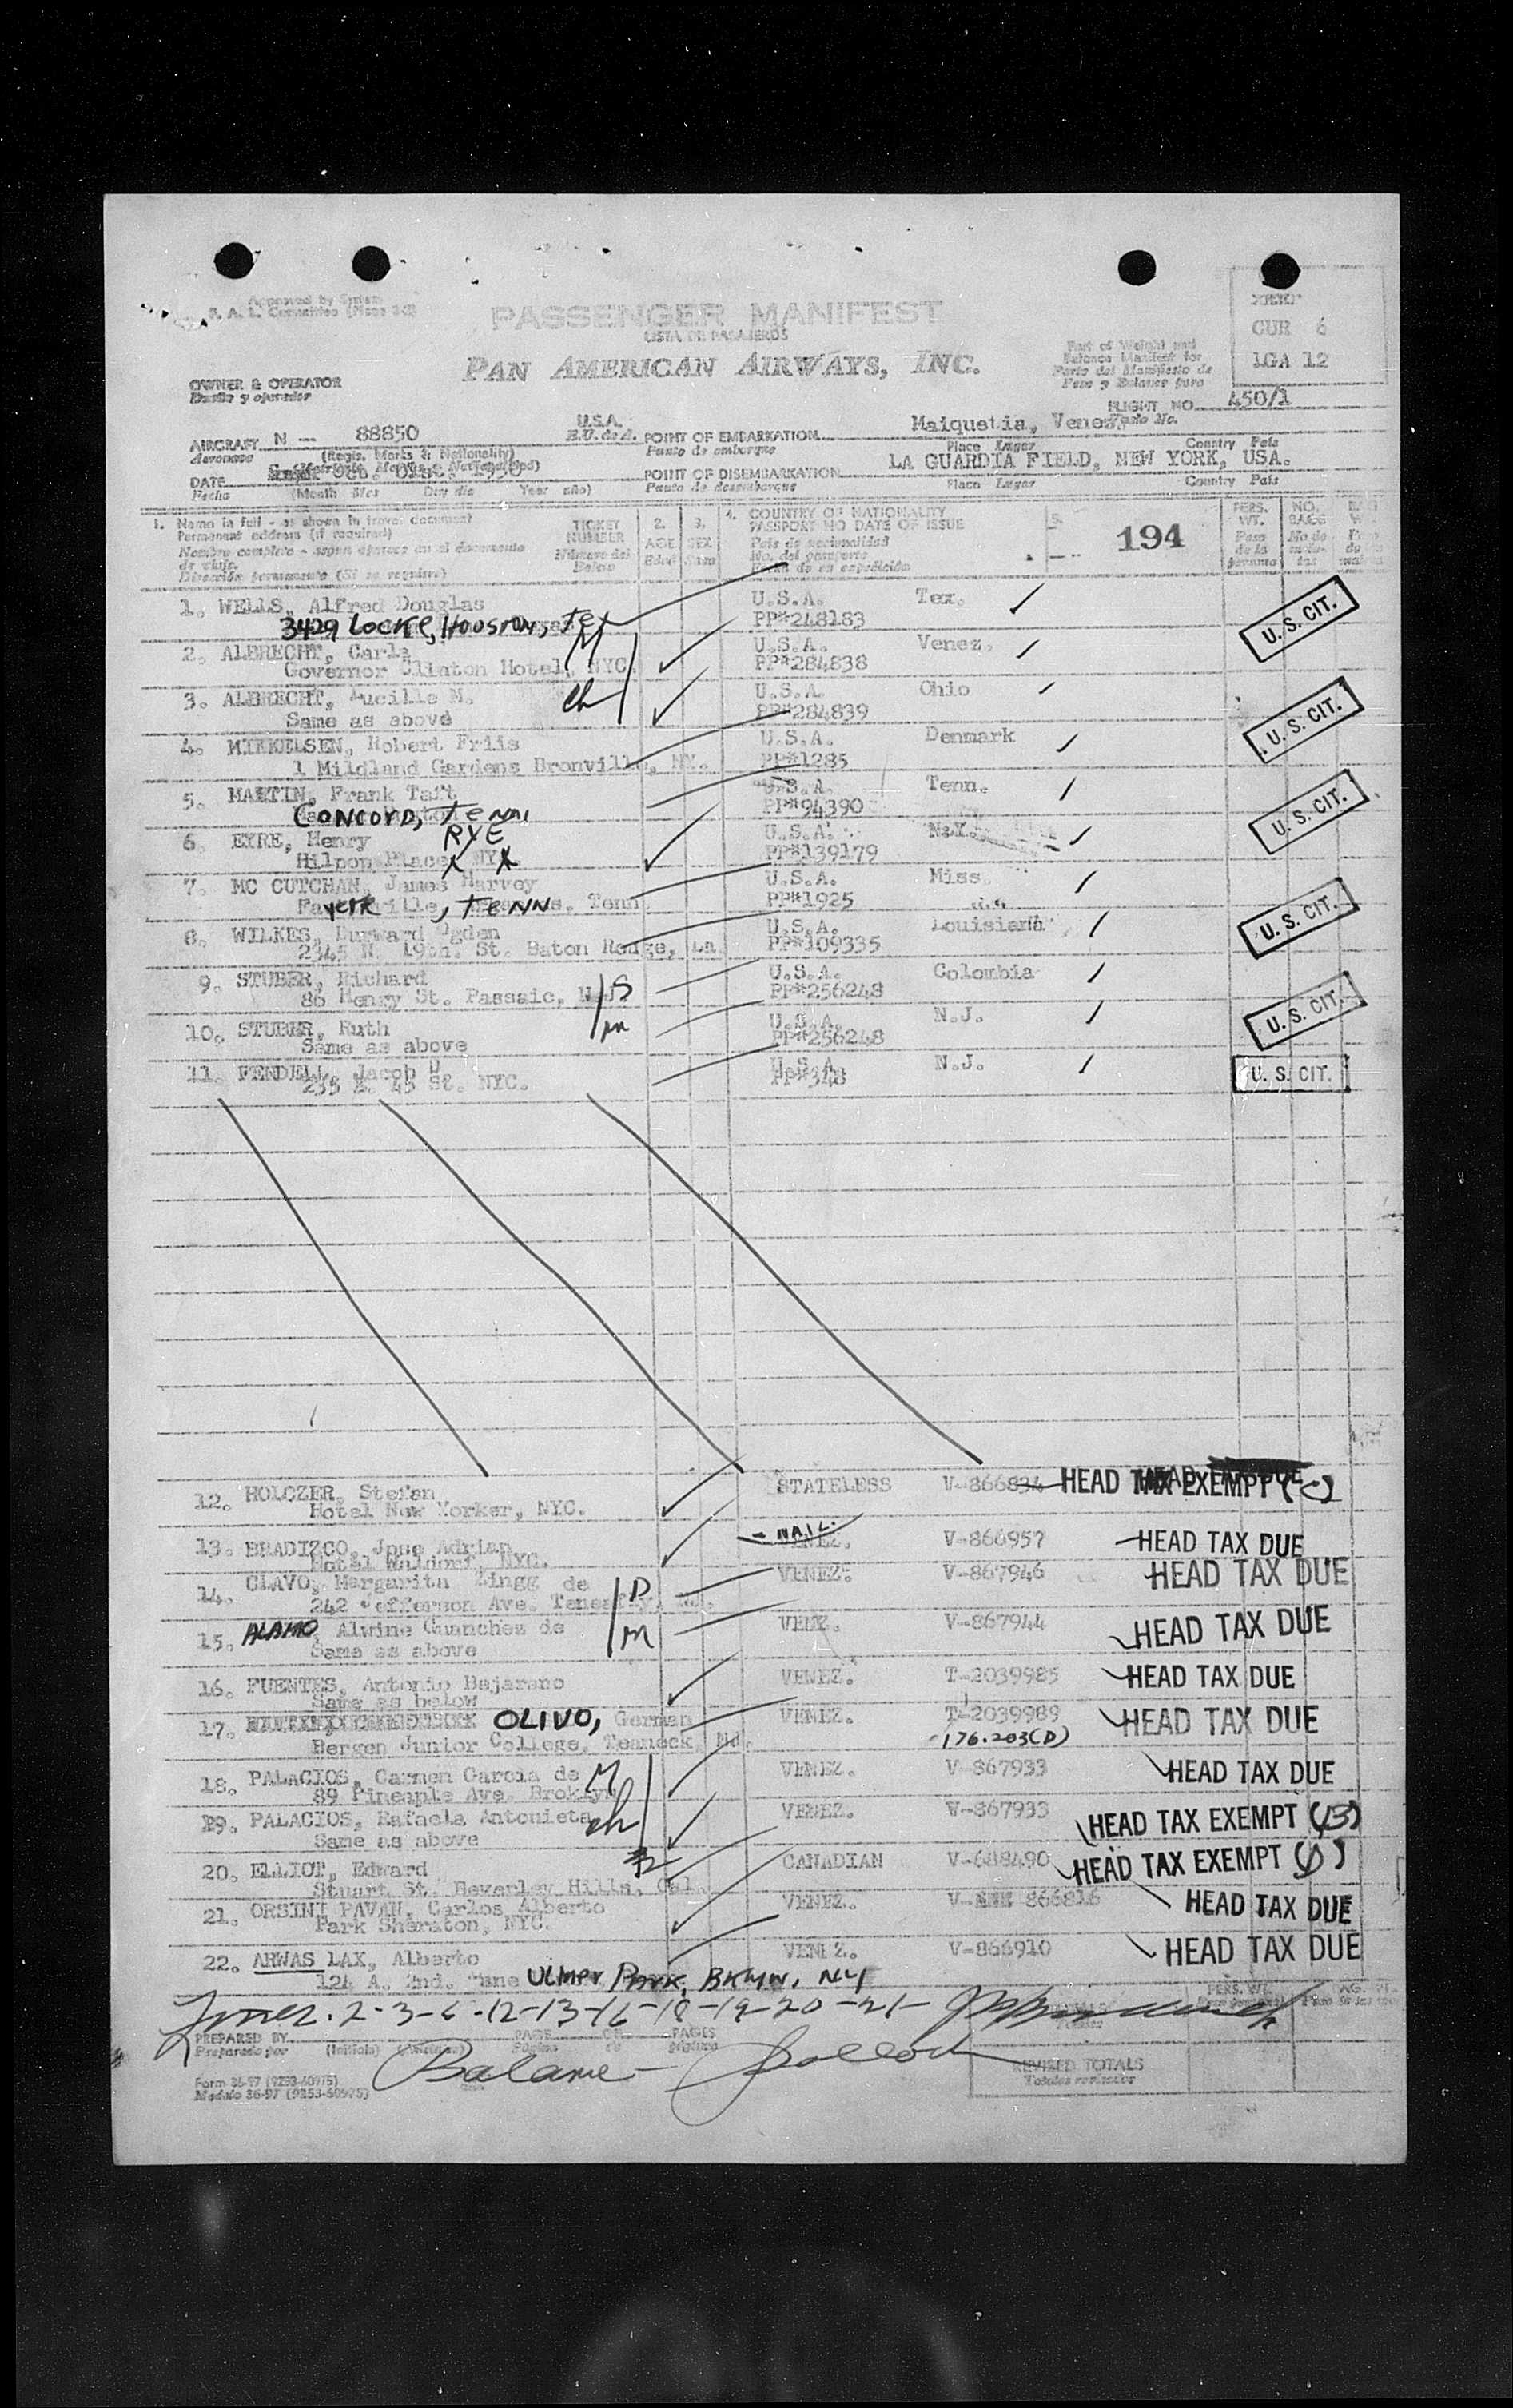 Approved by System
PASSENGER MANIFEST
LISTA DE PASAJEROS
PAN AMERICAN AIRWAYS, INC.
Part of Weight and
Balance Manifest for
Parte del Manifiesto de
Peso y Balance para
CUR 6
LGA 12
OWNER & OPERATOR
Dueño y operador
FLIGHT NO. 450/1
Vuelo No.
AIRCRAFT N - 88850
Aeronave
U.S.A.
E.U. de A.
POINT OF EMBARKATION Maiquetia, Venez.
Punto de embarque
Place Lugar Country País
DATE 1950
Fecha (Month Mes Day día Year año)
POINT OF DISEMBARKATION LA GUARDIA FIELD, NEW YORK, USA.
Punto de desembarque
Place Lugar Country País
1. Name in full - as shown in travel document
Permanent address (if required)
Nombre completo - según aparece en el documento
de viaje.
Dirección permanente (Si se requiere)
TICKET
NUMBER
Número del
Boleto
2.
AGE
Edad
3.
SEX
Sexo
4. COUNTRY OF NATIONALITY
PASSPORT NO DATE OF ISSUE
País de nacionalidad
No. del pasaporte
Fecha de su expedición
5.
194
PERS.
WT.
Peso
de la
persona
NO.
BAGS
1. WELLS, Alfred Douglas U.S.A. Tex.
3429 LOCKE, HOUSTON, TEX PP#248183 U.S. CIT.
2. ALBRECHT, Carl M U.S.A. Venez.
Governor Clinton Hotel, NYC PP#284838
3. ALBRECHT, Lucille M. ch U.S.A. Ohio
Same as above PP#284839 U.S. CIT.
4. MIKKELSEN, Robert Friis U.S.A. Denmark
1 Mildland Gardens Bronville, NY. PP#1285
5. MARTIN, Frank Taft U.S.A. Tenn.
CONCORD, TENN. PP#94390 U.S. CIT.
6. EYRE, Henry RYE U.S.A. N.Y.
Hilpon Place NY. PP#139179
7. MC CUTCHAN, James Harvey U.S.A. Miss.
Fayetteville, TENN PP#1925 U.S. CIT.
8. WILKES, Durward Ogden U.S.A. Louisiana
2345 N. 19th. St. Baton Rouge, La. PP#109335
9. STUBER, Richard S U.S.A. Colombia
86 Henry St. Passaic, N.J. PP#256248 U.S. CIT.
10. STUBER, Ruth m U.S.A. N.J.
Same as above PP#256248
11. FENDELL, Jacob D. U.S.A. N.J. U.S. CIT.
235 E. 45 St. NYC. PP#348
12. HOLCZER, Stefan STATELESS V-866834 HEAD TAX EXEMPT
Hotel New Yorker, NYC.
13. BRADIZCO, Jose Adrian VENEZ. V-866957 HEAD TAX DUE
Hotel Waldorf, NYC.
14. CLAVO, Margarita Zingg de D VENEZ. V-867946 HEAD TAX DUE
242 Jefferson Ave. Tenesfly, NJ.
15. ALAMO, Alwine Guanchez de m VENEZ. V-867944 HEAD TAX DUE
Same as above
16. FUENTES, Antonio Bejarano VENEZ. T-2039985 HEAD TAX DUE
Same as below
17. OLIVO, German VENEZ. T-2039989 HEAD TAX DUE
Bergen Junior College, Teaneck, NJ. 176.203(D)
18. PALACIOS, Carmen Garcia de M VENEZ. V-867933 HEAD TAX DUE
89 Pineaple Ave. Broklyn
19. PALACIOS, Rafaela Antonieta ch VENEZ. V-867933 HEAD TAX EXEMPT (13)
Same as above
20. ELLIOT, Edward CANADIAN V-688490 HEAD TAX EXEMPT
Stuart St. Beverley Hills, Cal.
21. ORSINI PAVAN, Carlos Alberto VENEZ. V- 866816 HEAD TAX DUE
Park Sheraton, NYC.
22. ARWAS LAX, Alberto VENEZ. V-866910 HEAD TAX DUE
124 A. 2nd. ULMER PARK, BKLYN, NY
2-3-6-12-13-16-18-19-20-21-
PREPARED BY
Preparado por (Initials)
PAGE OF PAGES
Balance
REVISED TOTALS
Totales revisados
Form 36-97 (9253-60975)
Modelo 36-97 (9253-60975)